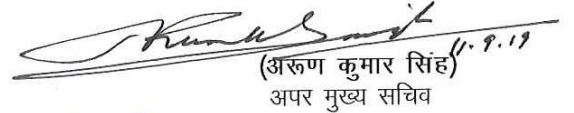 11.9.19
(अरुण कुमार सिंह)
अपर मुख्य सचिव